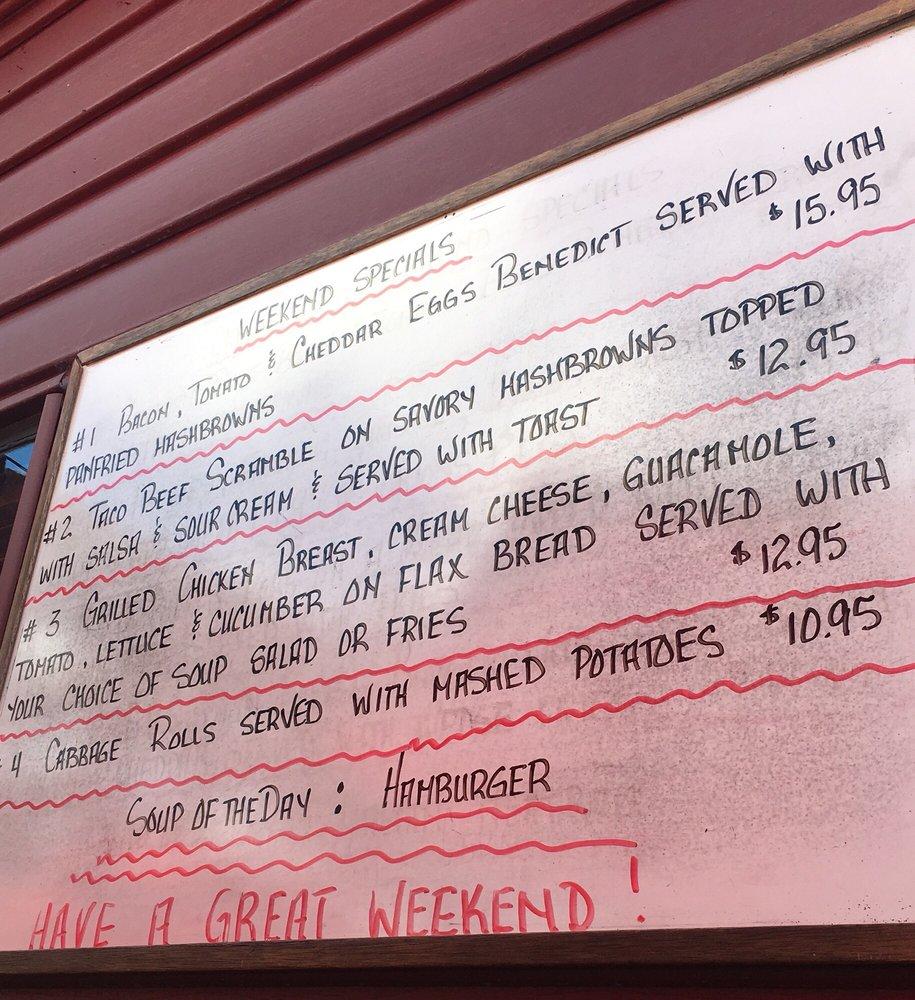 WEEKEND SPECIALS
#1 BACON, TOMATO & CHEDDAR EGGS BENEDICT SERVED WITH
PANFRIED HASHBROWNS $15.95
#2 TACO BEEF SCRAMBLE ON SAVORY HASHBROWNS TOPPED
WITH SALSA & SOUR CREAM & SERVED WITH TOAST $12.95
#3 GRILLED CHICKEN BREAST, CREAM CHEESE, GUACAMOLE,
TOMATO, LETTUCE & CUCUMBER ON FLAX BREAD SERVED WITH
YOUR CHOICE OF SOUP SALAD OR FRIES $12.95
4 CABBAGE ROLLS SERVED WITH MASHED POTATOES $10.95
SOUP OF THE DAY : HAMBURGER
HAVE A GREAT WEEKEND!